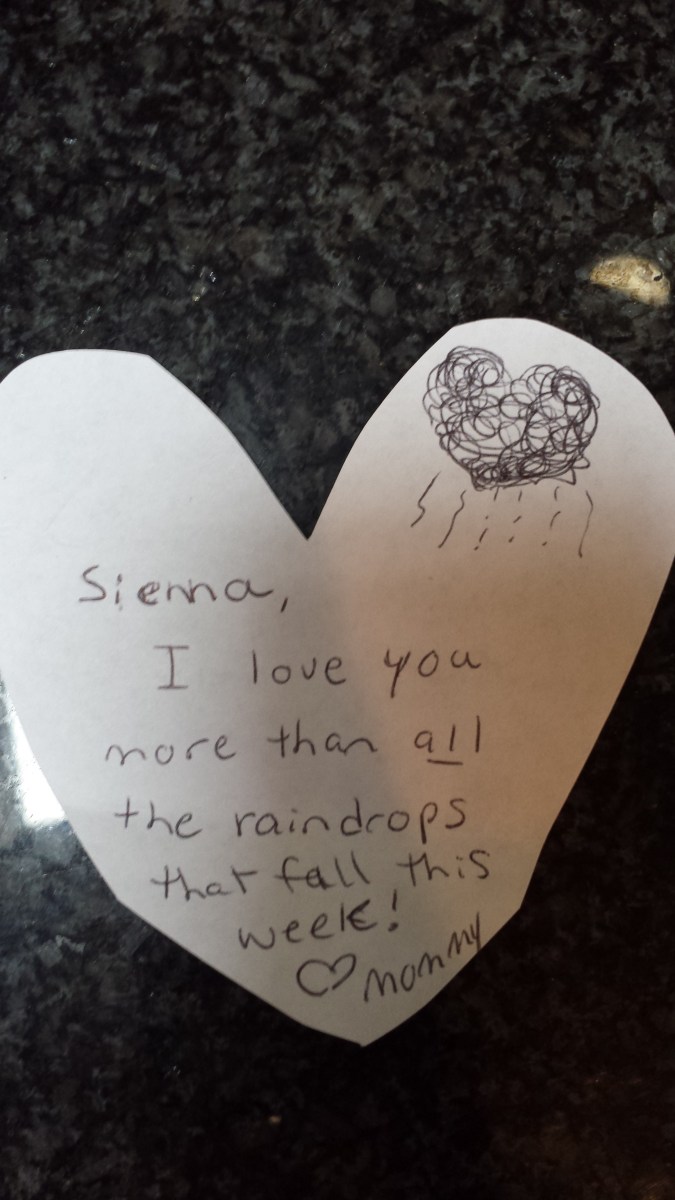 Sienna,
I love you
more than all
the raindrops
that fall this
week!
♡ mommy